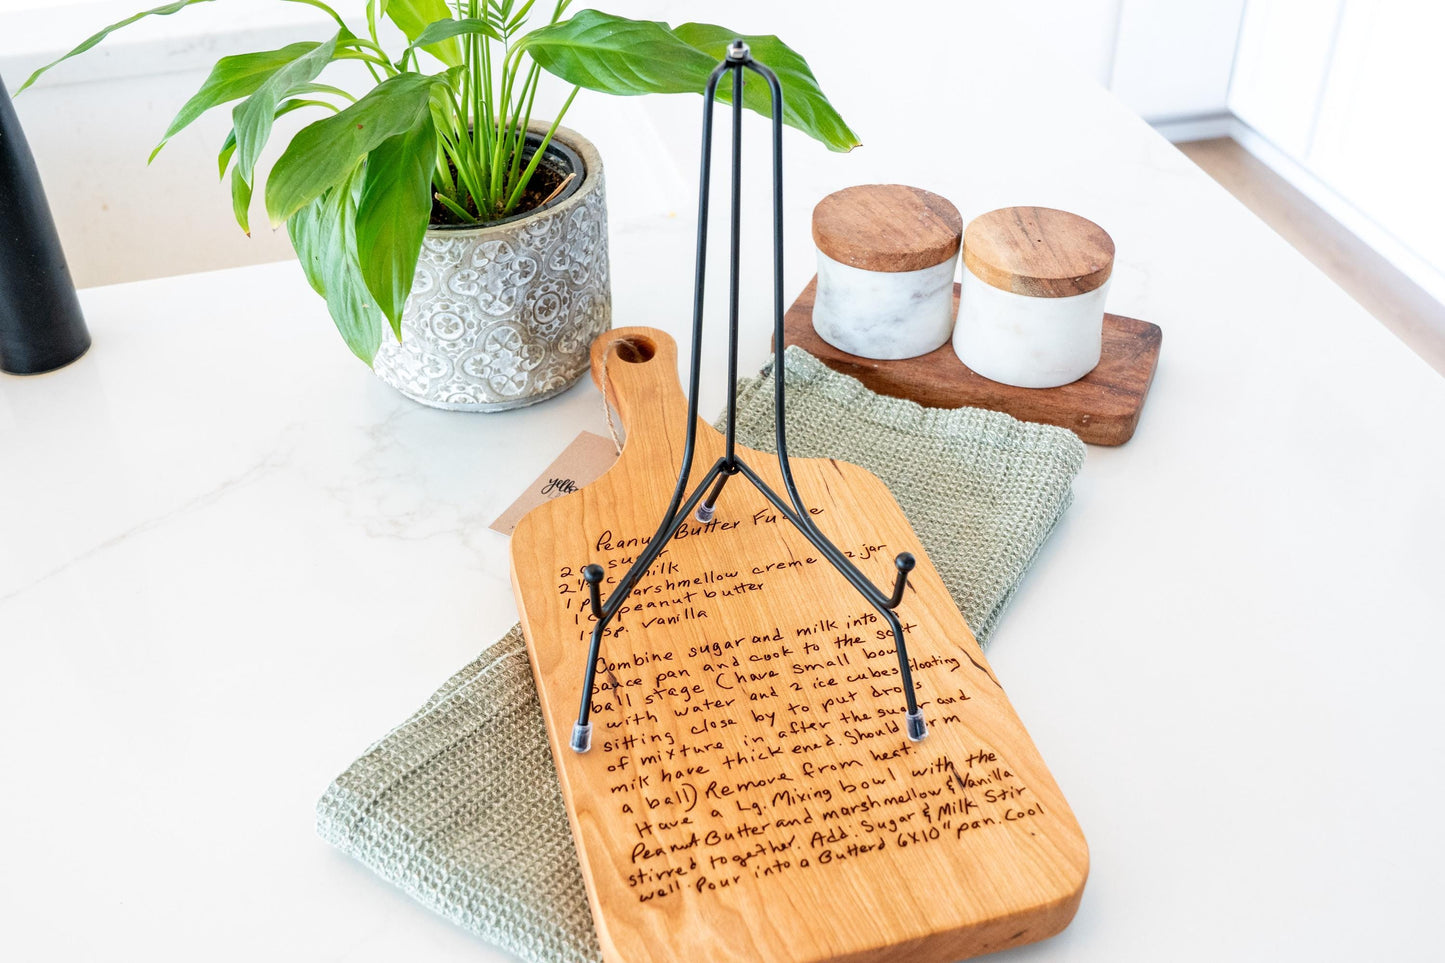 Peanut Butter Fudge
2 c sugar
2/3 c milk
1 pt marshmallow creme oz jar
1 c peanut butter
1 tsp. vanilla
Combine sugar and milk into a
sauce pan and cook to the soft
ball stage (have small bowl
with water and 2 ice cubes floating
sitting close by to put drops
of mixture in after the sugar and
milk have thickened. Should form
a ball) Remove from heat.
Have a Lg. Mixing bowl with the
Peanut Butter and marshmellow & Vanilla
stirred together. Add. Sugar & Milk Stir
well. Pour into a Butterd 6x10" pan. Cool